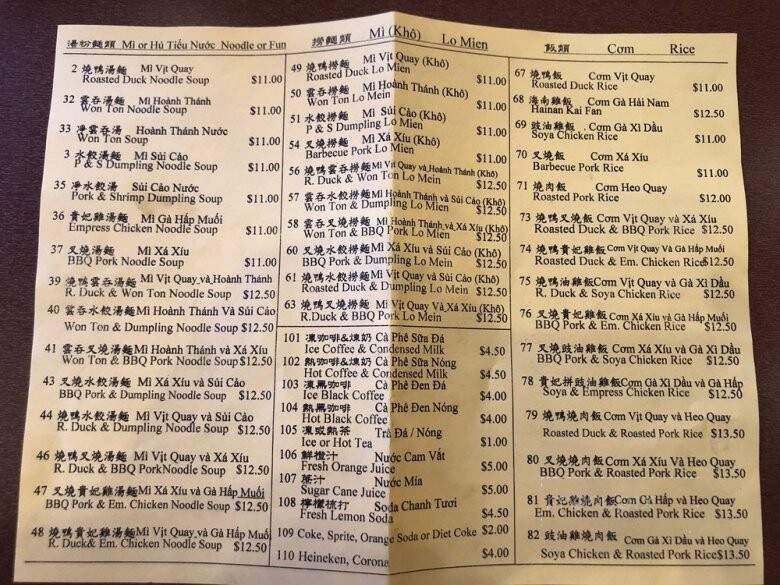 湯粉麵類 Mì or Hủ Tiếu Nước Noodle or Fun
2 燒鴨湯麵 Mì Vịt Quay
Roasted Duck Noodle Soup $11.00
32 雲吞湯麵 Mì Hoành Thánh
Won Ton Noodle Soup $11.00
33 淨雲吞湯 Hoành Thánh Nước
Won Ton Soup $11.00
3 水餃湯麵 Mì Sủi Cảo
P & S Dumpling Noodle Soup $11.00
35 淨水餃湯 Sủi Cảo Nước
Pork & Shrimp Dumpling Soup $11.00
36 貴妃雞湯麵 Mì Gà Hấp Muối
Empress Chicken Noodle Soup $11.00
37 叉燒湯麵 Mì Xá Xíu
BBQ Pork Noodle Soup $11.00
39 燒鴨雲吞湯麵 Mì Vịt Quay và Hoành Thánh
R. Duck & Won Ton Noodle Soup $12.50
40 雲吞水餃湯麵 Mì Hoành Thánh Và Sủi Cảo
Won Ton & Dumpling Noodle Soup $12.50
41 雲吞叉燒湯麵 Mì Hoành Thánh và Xá Xíu
Won Ton & BBQ Pork Noodle Soup $12.50
43 叉燒水餃湯麵 Mì Xá Xíu và Sủi Cảo
BBQ Pork & Dumpling Noodle Soup $12.50
44 燒鴨水餃湯麵 Mì Vịt Quay và Sủi Cảo
R. Duck & Dumpling Noodle Soup $12.50
46 燒鴨叉燒湯麵 Mì Vịt Quay và Xá Xíu
R. Duck & BBQ Pork Noodle Soup $12.50
47 叉燒貴妃雞湯麵 Mì Xá Xíu và Gà Hấp Muối
BBQ Pork & Em. Chicken Noodle Soup $12.50
48 燒鴨貴妃雞湯麵 Mì Vịt Quay và Gà Hấp Muối
R. Duck & Em. Chicken Noodle Soup $12.50
撈麵類 Mì (Khô) Lo Mien
49 燒鴨撈麵 Mì Vịt Quay (Khô)
Roasted Duck Lo Mien $11.00
50 雲吞撈麵 Mì Hoành Thánh (Khô)
Won Ton Lo Mein $11.00
51 水餃撈麵 Mì Sủi Cảo (Khô)
P & S Dumpling Lo Mien $11.00
54 叉燒撈麵 Mì Xá Xíu (Khô)
Barbecue Pork Lo Mien $11.00
56 燒鴨雲吞撈麵 Mì Vịt Quay và Hoành Thánh (Khô)
R. Duck & Won Ton Lo Mein $12.50
57 雲吞水餃撈麵 Mì Hoành Thánh và Sủi Cảo (Khô)
Won Ton & Dumpling Lo Mein $12.50
58 雲吞叉燒撈麵 Mì Hoành Thánh và Xá Xíu (Khô)
Won Ton & BBQ Pork Lo Mein $12.50
60 叉燒水餃撈麵 Mì Xá Xíu và Sủi Cảo (Khô)
BBQ Pork & Dumpling Lo Mein $12.50
61 燒鴨水餃撈麵 Mì Vịt Quay và Sủi Cảo (Khô)
Roasted Duck & Dumpling Lo Mein $12.50
63 燒鴨叉燒撈麵 Mì Vịt Quay Và Xá Xíu (Khô)
R.Duck & BBQ Pork Lo Mein $12.50
101 凍咖啡&煉奶 Cà Phê Sữa Đá
Ice Coffee & Condensed Milk $4.50
102 熱咖啡&煉奶 Cà Phê Sữa Nóng
Hot Coffee & Condensed Milk $4.50
103 凍黑咖啡 Cà Phê Đen Đá
Ice Black Coffee $4.00
104 熱黑咖啡 Cà Phê Đen Nóng
Hot Black Coffee $4.00
105 凍或熱茶 Trà Đá / Nóng
Ice or Hot Tea $1.00
106 鮮橙汁 Nước Cam Vắt
Fresh Orange Juice $5.00
107 蔗汁 Nước Mía
Sugar Cane Juice $5.00
108 檸檬梳打 Soda Chanh Tươi
Fresh Lemon Soda $4.50
109 Coke, Sprite, Orange Soda or Diet Coke $2.00
110 Heineken, Corona $4.00
飯類 Cơm Rice
67 燒鴨飯 Cơm Vịt Quay
Roasted Duck Rice $11.00
68 海南雞飯 Cơm Gà Hải Nam
Hainan Kai Fan $12.50
69 豉油雞飯 Cơm Gà Xì Dầu
Soya Chicken Rice $11.00
70 叉燒飯 Cơm Xá Xíu
Barbecue Pork Rice $11.00
71 燒肉飯 Cơm Heo Quay
Roasted Pork Rice $12.00
73 燒鴨叉燒飯 Cơm Vịt Quay và Xá Xíu
Roasted Duck & BBQ Pork Rice $12.50
74 燒鴨貴妃雞飯 Cơm Vịt Quay và Gà Hấp Muối
Roasted Duck & Em. Chicken Rice $12.50
75 燒鴨油雞飯 Cơm Vịt Quay và Gà Xì Dầu
R. Duck & Soya Chicken Rice $12.50
76 叉燒貴妃雞飯 Cơm Xá Xíu và Gà Hấp Muối
BBQ Pork & Em. Chicken Rice $12.50
77 叉燒豉油雞飯 Cơm Xá Xíu và Gà Xì Dầu
BBQ Pork & Soya Chicken Rice $12.50
78 貴妃拼豉油雞飯 Cơm Gà Xì Dầu và Gà Hấp
Soya & Empress Chicken Rice $12.50
79 燒鴨燒肉飯 Cơm Vịt Quay và Heo Quay
Roasted Duck & Roasted Pork Rice $13.50
80 叉燒燒肉飯 Cơm Xá Xíu Và Heo Quay
BBQ Pork & Roasted Pork Rice $13.50
81 貴妃雞燒肉飯 Cơm Gà Hấp và Heo Quay
Em. Chicken & Roasted Pork Rice $13.50
82 豉油雞燒肉飯 Cơm Gà Xì Dầu và Heo Quay
Soya Chicken & Roasted Pork Rice $13.50